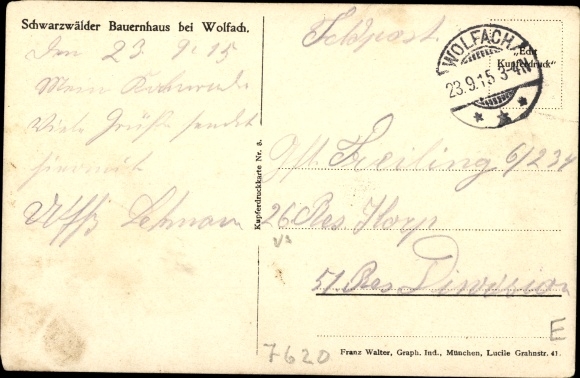 Schwarzwälder Bauernhaus bei Wolfach.
Den 23. 9. 15
Viele Grüße sendet
hiermit
Feldpost.
WOLFACH
23.9.15 3-4N
„Echt
Kupferdruck"
Kupferdruckkarte Nr. 8.
Freiling 6/234
26 Res Korp
51 Res Division
7620
E
Franz Walter, Graph. Ind., München, Lucile Grahnstr. 41.